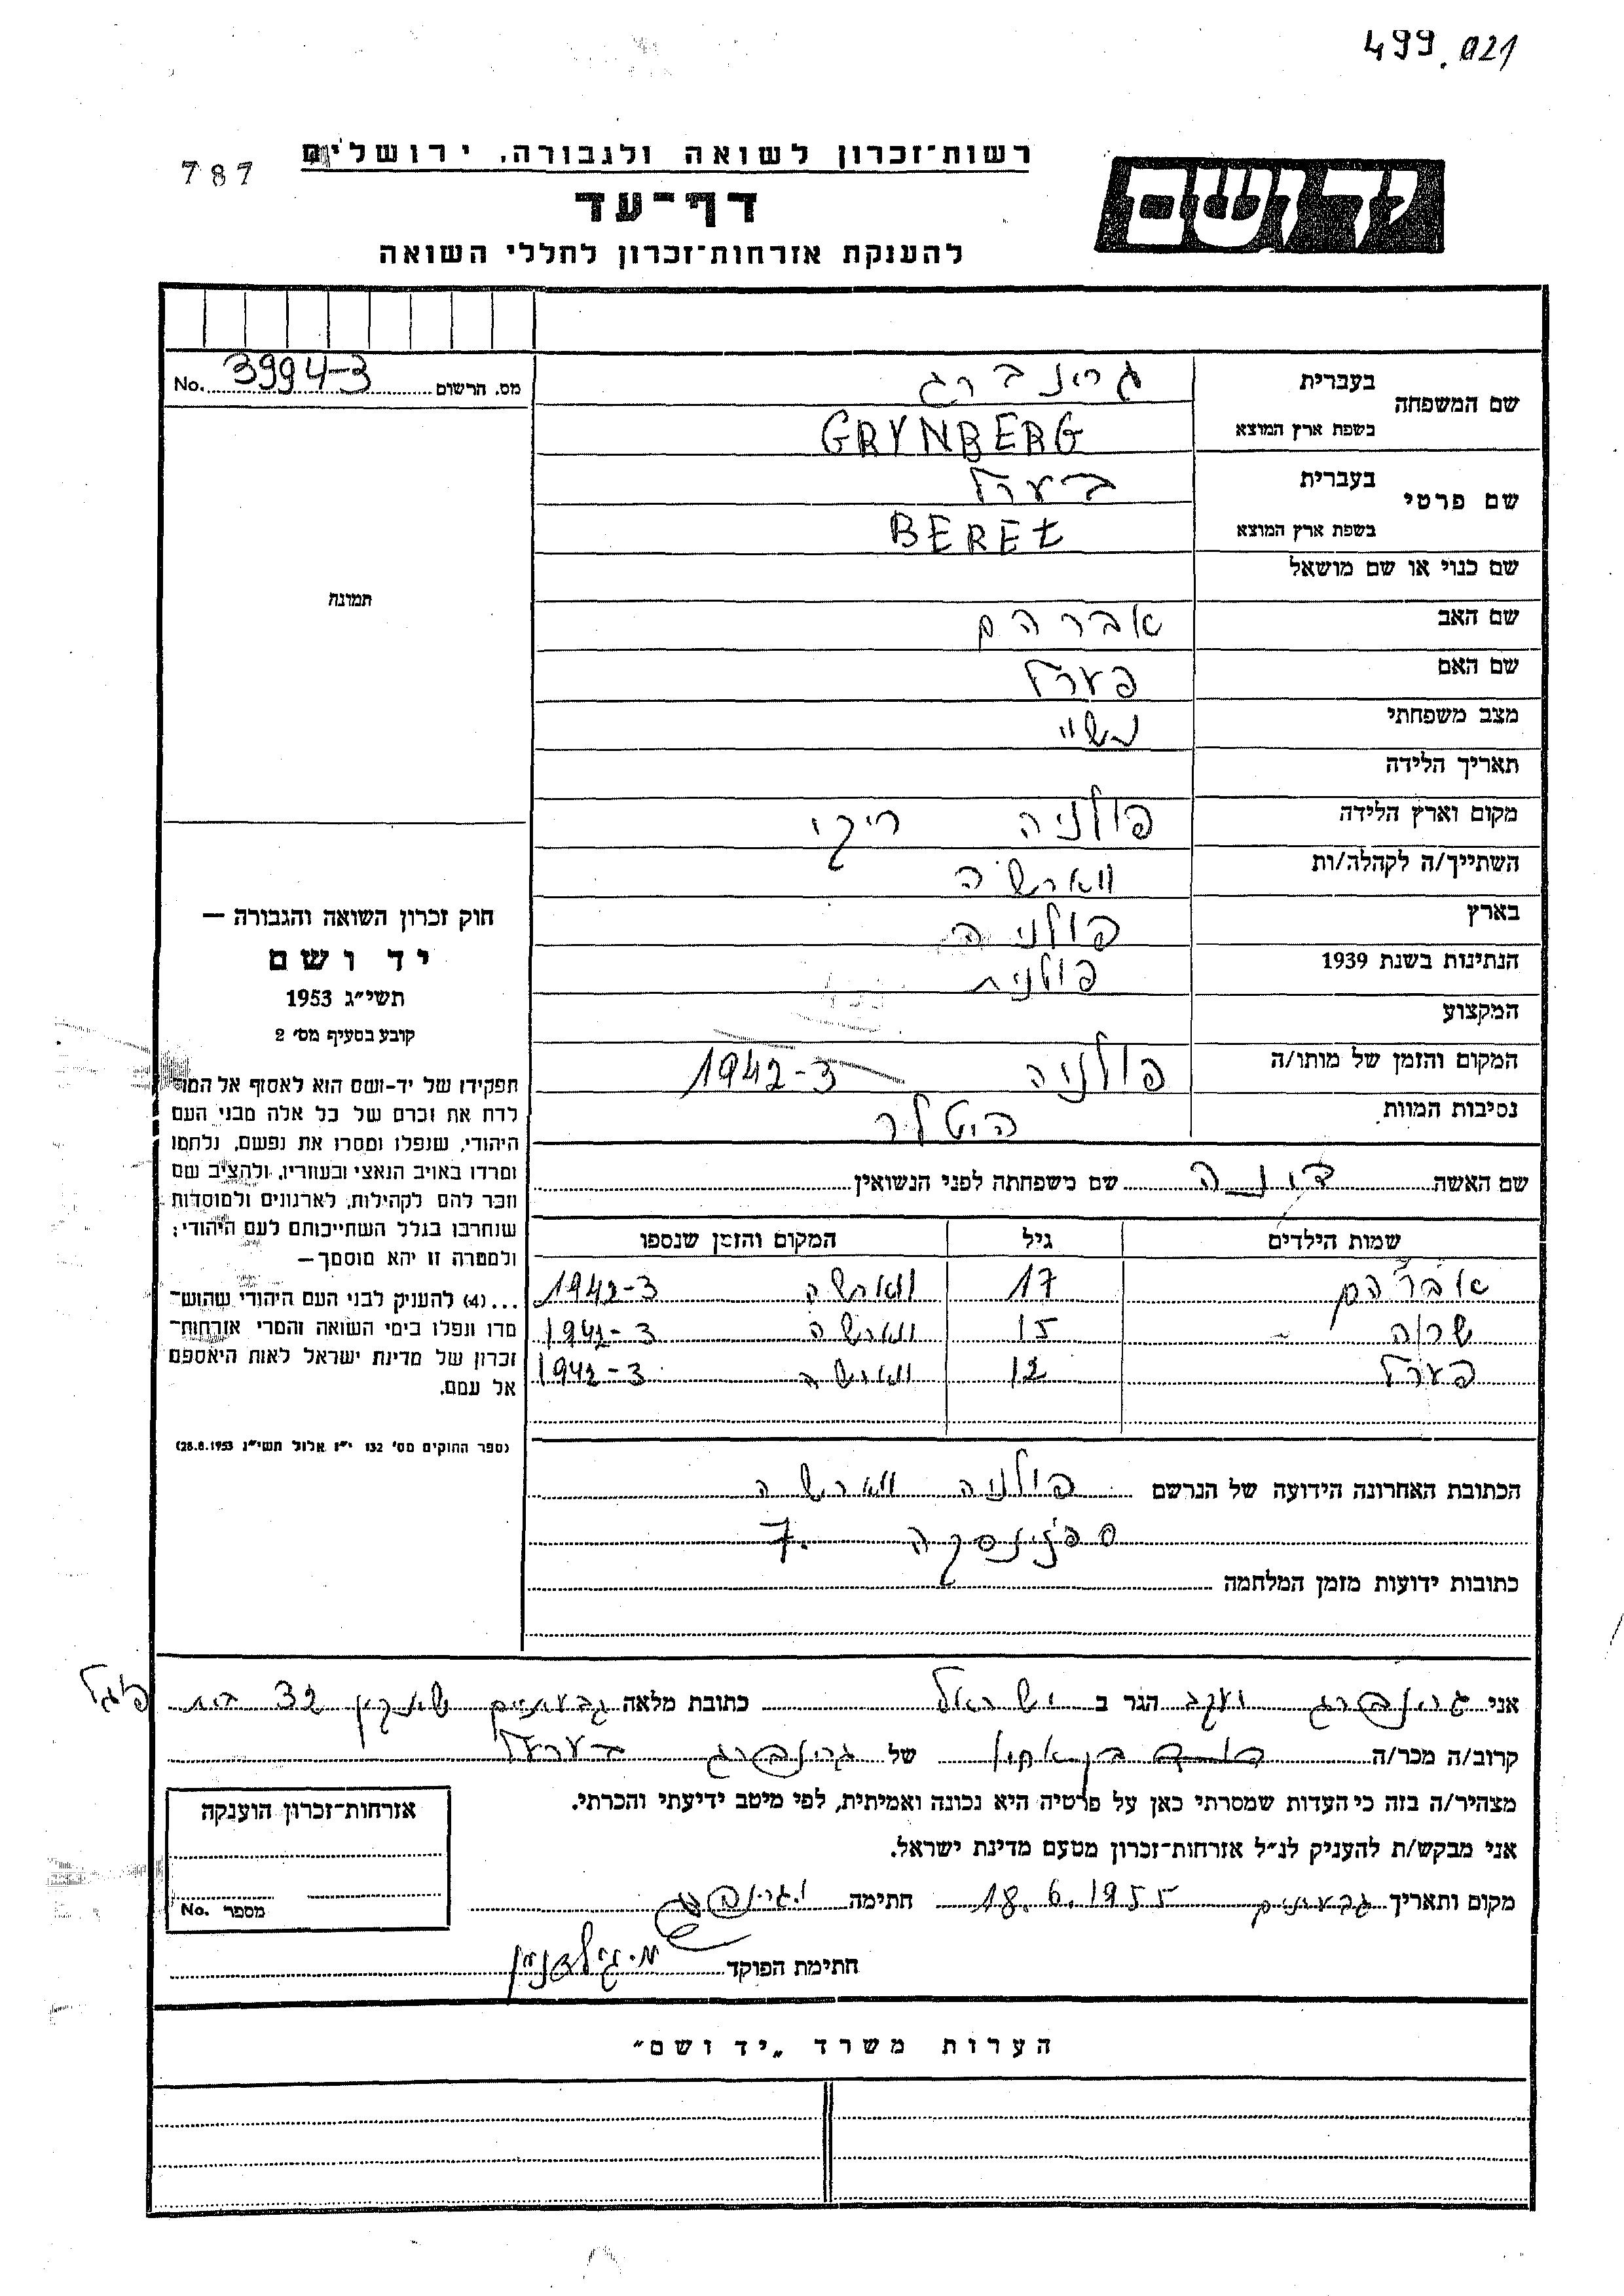 499.021
787
רשות־זכרון לשואה ולגבורה, ירושלים
יד ושם
דף־עד
להענקת אזרחות־זכרון לחללי השואה
מס. הרשום 3994-3 No.
שם המשפחה
בעברית גרינברג
בשפת ארץ המוצא GRYNBERG
שם פרטי
בעברית בערל
בשפת ארץ המוצא BEREŁ
שם כנוי או שם מושאל
תמונה
שם האב אברהם
שם האם פערל
מצב משפחתי נשוי
תאריך הלידה
מקום וארץ הלידה פולניה ריקי
השתייך/ה לקהלה/ות ווארשה
בארץ פולניה
הנתינות בשנת 1939 פולנית
המקצוע
המקום והזמן של מותו/ה פולניה 1942-3
נסיבות המוות היטלר
חוק זכרון השואה והגבורה —
יד ושם
תשי״ג 1953
קובע בסעיף מס׳ 2
תפקידו של יד-ושם הוא לאסוף אל המו־
לדת את זכרם של כל אלה מבני העם
היהודי, שנפלו ומסרו את נפשם, נלחמו
ומרדו באויב הנאצי ובעוזריו, ולהציב שם
וזכר להם לקהילות, לארגונים ולמוסדות
שנחרבו בגלל השתייכותם לעם היהודי;
ולמטרה זו יהא מוסמך—
...(4) להעניק לבני העם היהודי שהוש־
מדו ונפלו בימי השואה והמרי אזרחות־
זכרון של מדינת ישראל לאות היאספם
אל עמם.
(ספר החוקים מס׳ 132 י״ז אלול תשי״ג 28.8.1953)
שם האשה דונה שם משפחתה לפני הנשואין
שמות הילדים גיל המקום והזמן שנספו
אברהם 17 ווארשה 1942-3
שרה 15 ווארשה 1942-3
פערל 12 ווארשה 1942-3
הכתובת האחרונה הידועה של הנרשם פולניה ווארשה
7.
כתובות ידועות מזמן המלחמה
אני גרינברג יעקב הגר ב ישראל כתובת מלאה גבעתיים שינקין 32
קרוב/ה מכר/ה בן אחיו של גרינברג בערל
מצהיר/ה בזה כי העדות שמסרתי כאן על פרטיה היא נכונה ואמיתית, לפי מיטב ידיעתי והכרתי.
אני מבקש/ת להעניק לנ״ל אזרחות־זכרון מטעם מדינת ישראל.
מקום ותאריך גבעתיים 18.6.1955 חתימה י.גרינברג
חתימת הפוקד
אזרחות־זכרון הוענקה
מספר No.
הערות משרד „יד ושם״